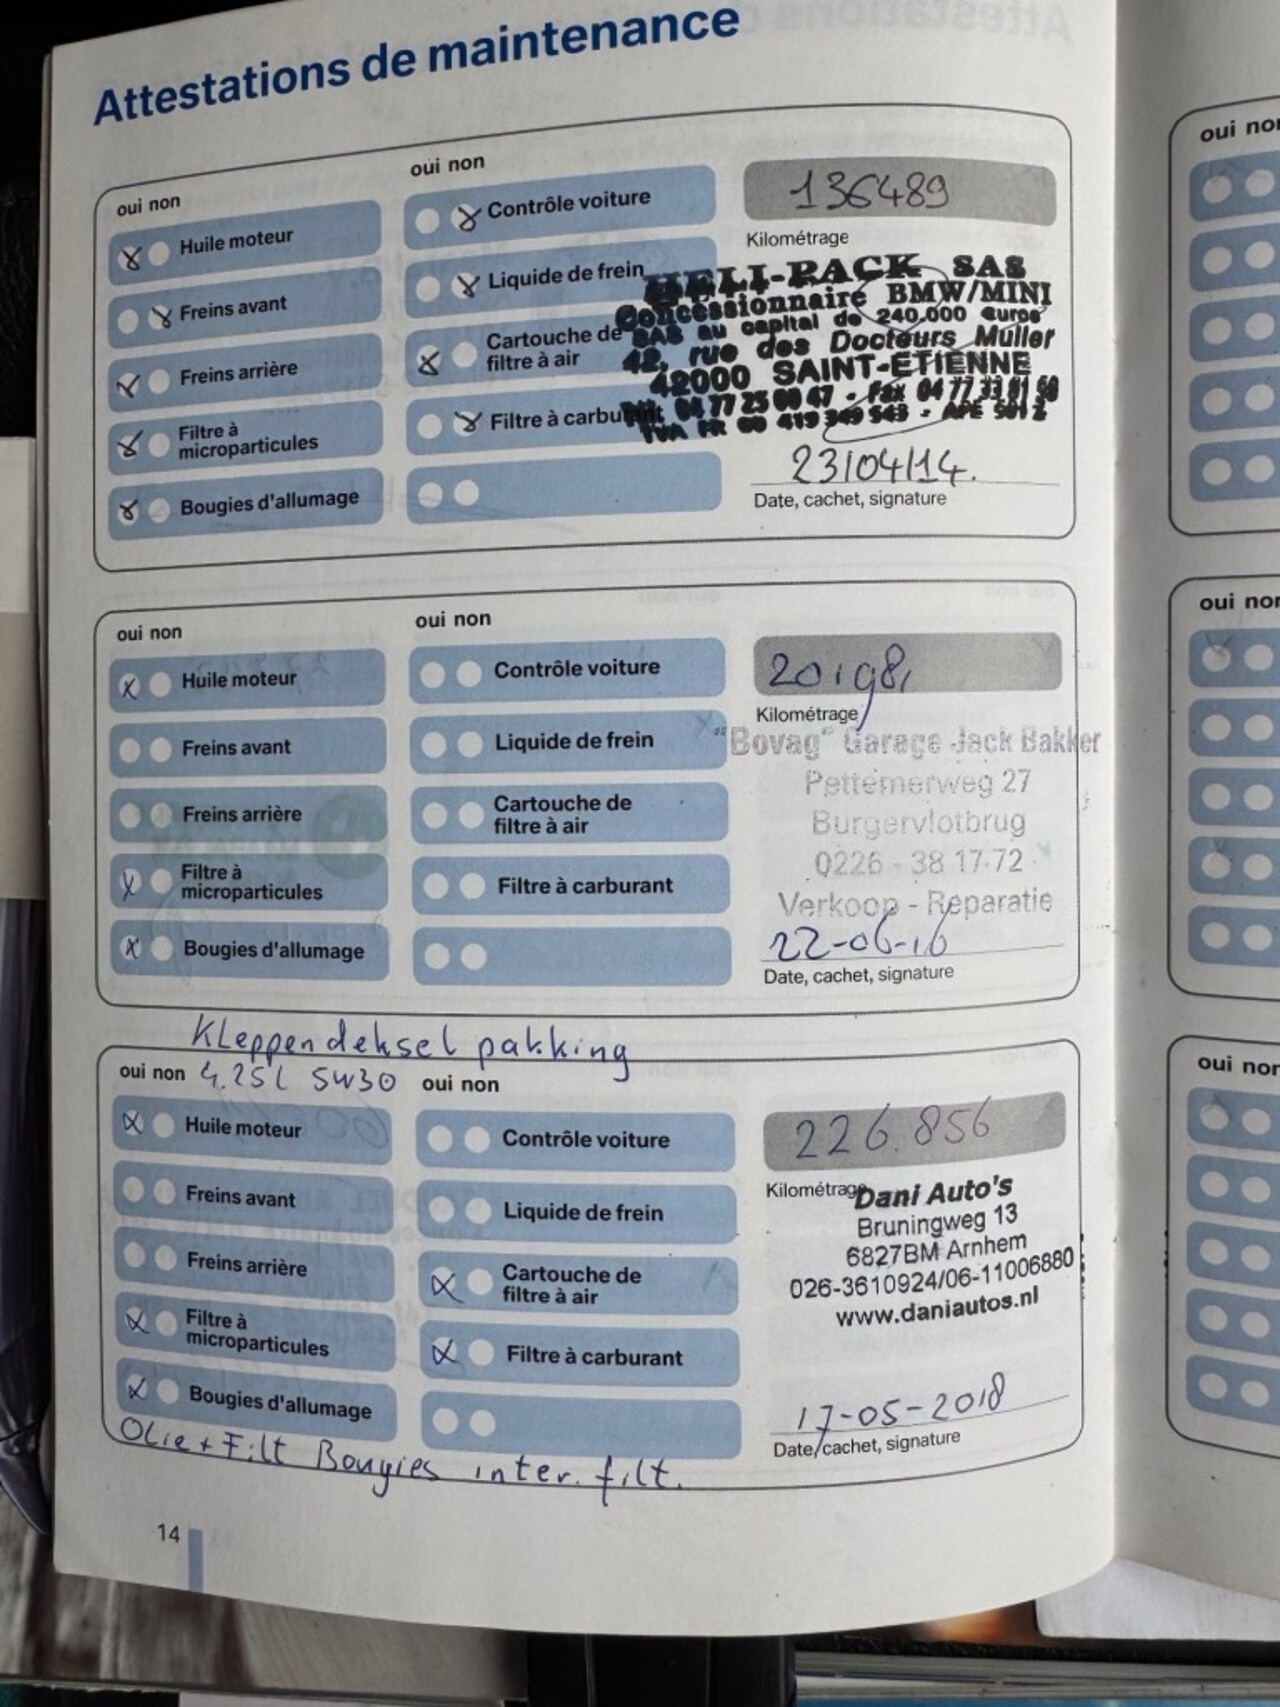 Attestations de maintenance
oui non
oui non
Huile moteur
Freins avant
Freins arrière
Filtre à
microparticules
Bougies d'allumage
Contrôle voiture
Liquide de frein
Cartouche de
filtre à air
Filtre à carburant
136489
Kilométrage
HELI-PACK SAS
Concessionnaire BMW/MINI
SAS au capital de 240.000 euros
42, rue des Docteurs Muller
42000 SAINT-ETIENNE
04 77 25 00 47 - Fax 04 77 33 61 50
TVA FR 60 419 349 543 - APE 501 Z
23/04/14.
Date, cachet, signature
oui non
oui non
Huile moteur
Freins avant
Freins arrière
Filtre à
microparticules
Bougies d'allumage
Contrôle voiture
Liquide de frein
Cartouche de
filtre à air
Filtre à carburant
Kilométrage
"Bovag" Garage Jack Bakker
Pettemerweg 27
Burgervlotbrug
0226 - 38 17 72
Verkoop - Reparatie
22-06-16
Date, cachet, signature
Kleppendeksel pakking
oui non 4.25l 5W30 oui non
Huile moteur
Freins avant
Freins arrière
Filtre à
microparticules
Bougies d'allumage
Contrôle voiture
Liquide de frein
Cartouche de
filtre à air
Filtre à carburant
226.856
Kilométrage
Dani Auto's
Bruningweg 13
6827BM Arnhem
026-3610924/06-11006880
www.daniautos.nl
17-05-2018
Date, cachet, signature
Olie + Filt Bougies inter. filt.
14
oui non
oui non
oui non